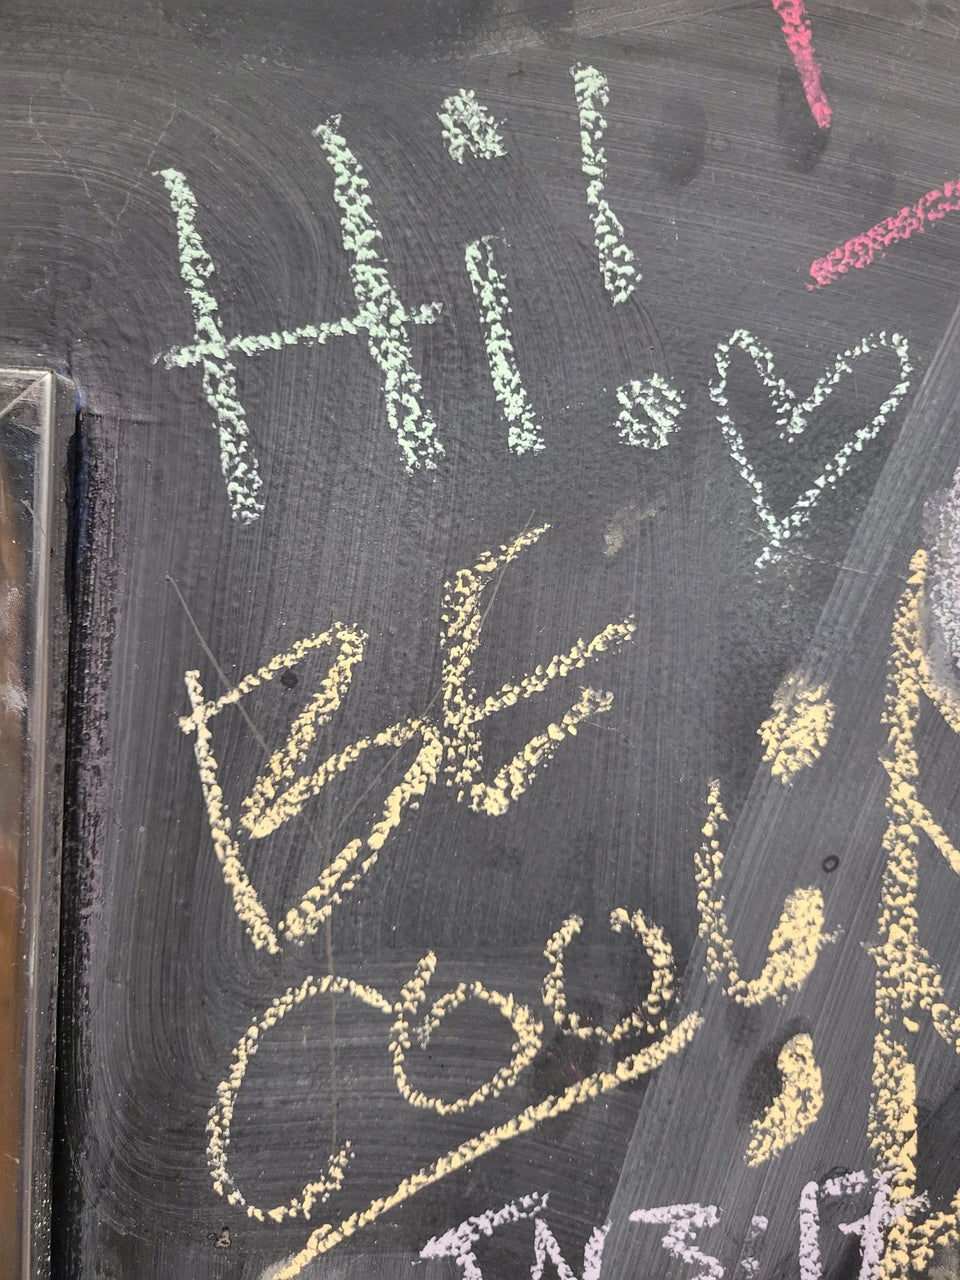 Hi! ♡
BE
COOL